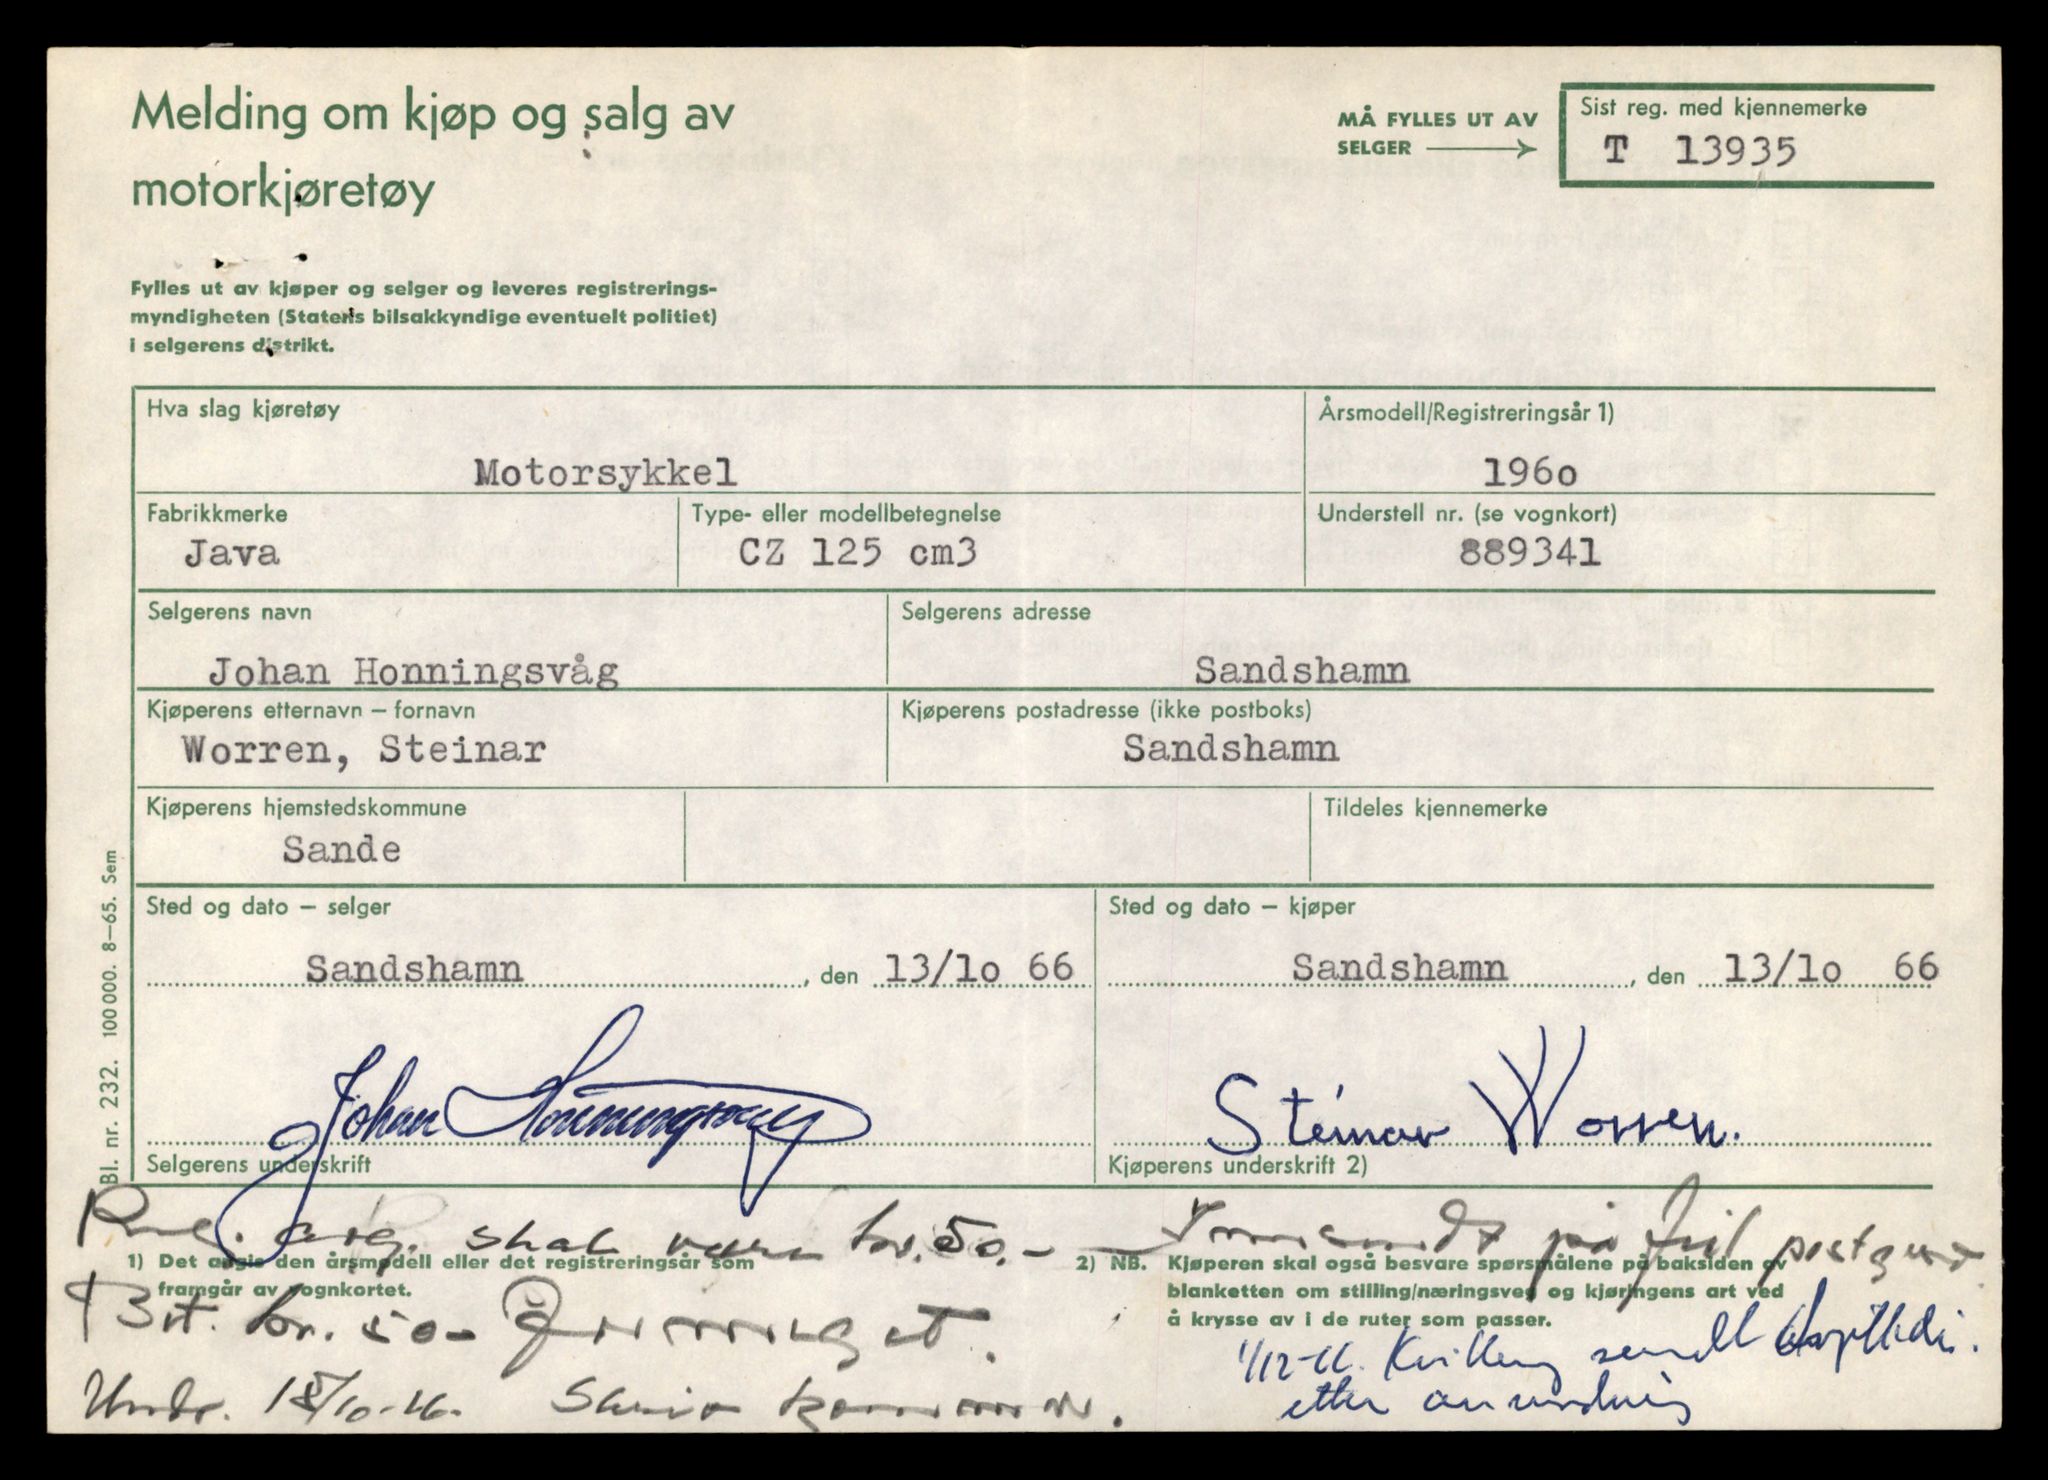 Melding om kjøp og salg av
motorkjøretøy
MÅ FYLLES UT AV
SELGER
Sist reg. med kjennemerke
T 13935
Fylles ut av kjøper og selger og leveres registrerings-
myndigheten (Statens bilsakkyndige eventuelt politiet)
i selgerens distrikt.
Hva slag kjøretøy
Motorsykkel
Årsmodell/Registreringsår 1)
196o
Fabrikkmerke
Java
Type- eller modellbetegnelse
CZ 125 cm3
Understell nr. (se vognkort)
889341
Selgerens navn
Johan Honningsvåg
Selgerens adresse
Sandshamn
Kjøperens etternavn – fornavn
Worren, Steinar
Kjøperens postadresse (ikke postboks)
Sandshamn
Kjøperens hjemstedskommune
Sande
Tildeles kjennemerke
Sted og dato – selger
Sandshamn, den 13/1o 66
Sted og dato – kjøper
Sandshamn, den 13/1o 66
Johan Honningsvåg
Steinar Worren.
Selgerens underskrift
Kjøperens underskrift 2)
Bl. nr. 232. 100 000. 8–65. Sem
avg. skal være kr. 50.- Innsendt på postgiro
1) Det angis den årsmodell eller det registreringsår som
framgår av vognkortet.
2) NB. Kjøperen skal også besvare spørsmålene på baksiden av
blanketten om stilling/næringsveg og kjøringens art ved
å krysse av i de ruter som passer.
Bet. kr. 50-
1/12-66. sendt
etter anvisning